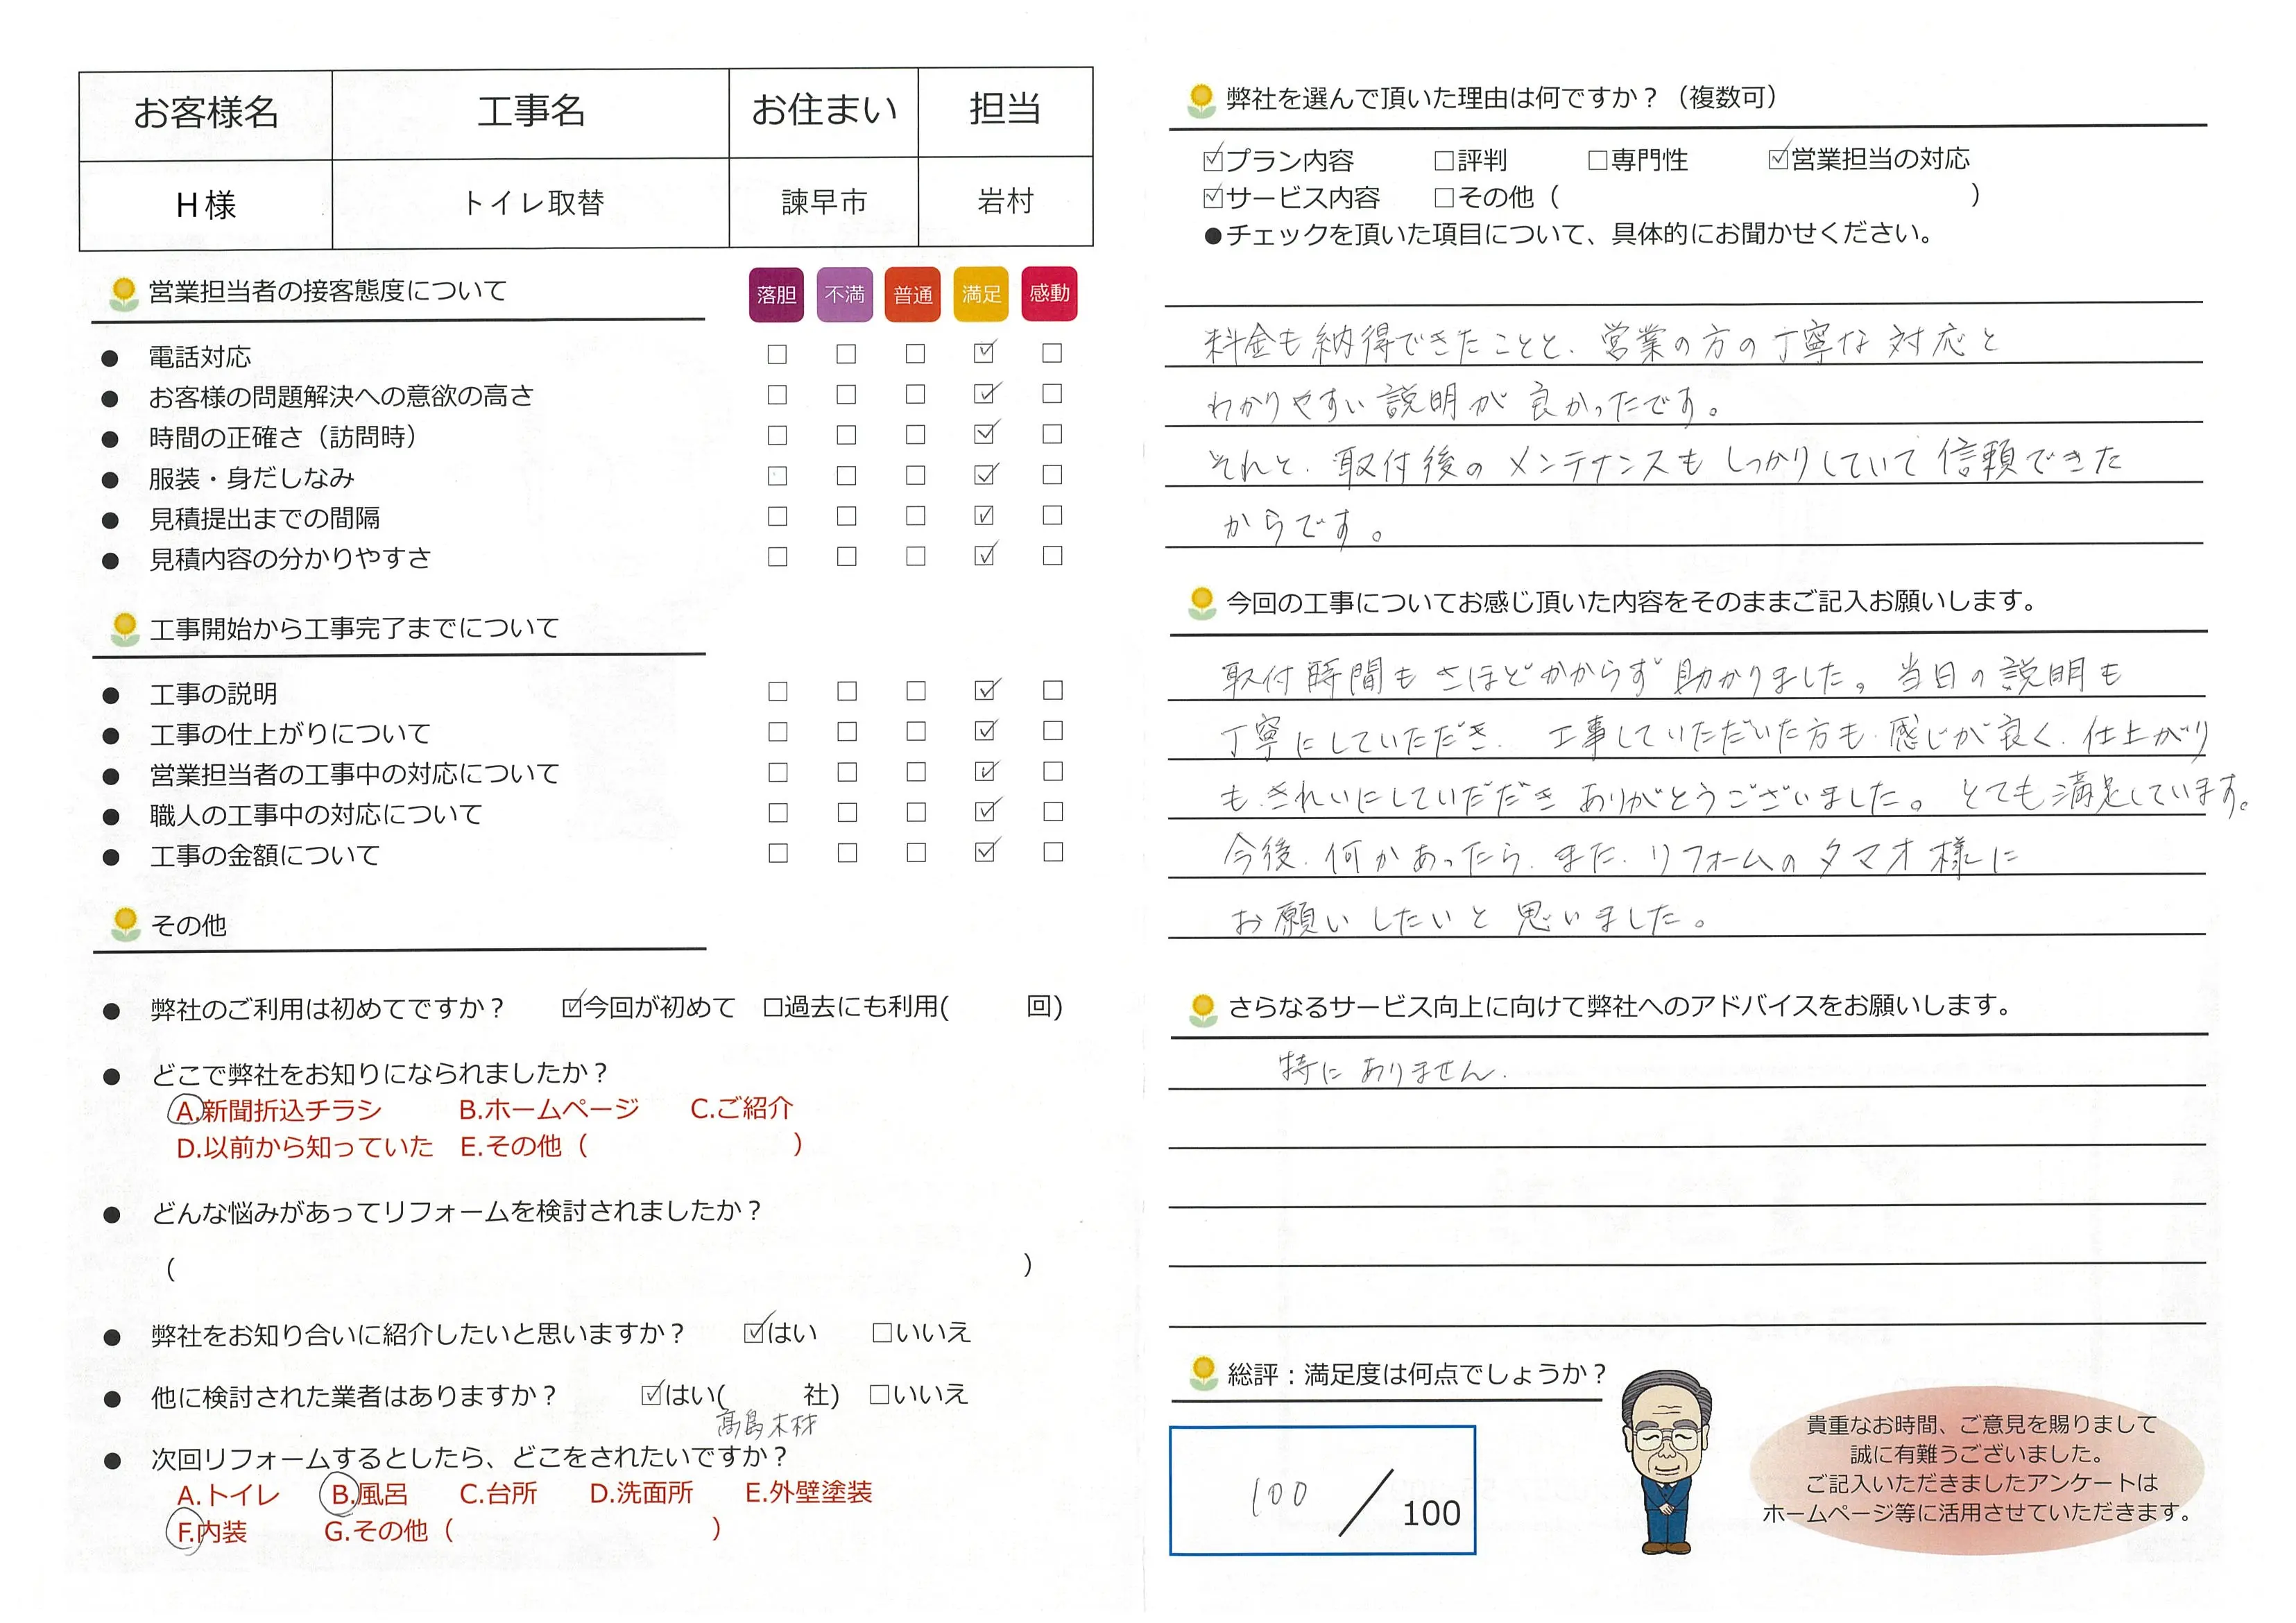 お客様名 工事名 お住まい 担当
H様 トイレ取替 諫早市 岩村
営業担当者の接客態度について 落胆 不満 普通 満足 感動
● 電話対応 □ □ □ ☑ □
● お客様の問題解決への意欲の高さ □ □ □ ☑ □
● 時間の正確さ（訪問時） □ □ □ ☑ □
● 服装・身だしなみ □ □ □ ☑ □
● 見積提出までの間隔 □ □ □ ☑ □
● 見積内容の分かりやすさ □ □ □ ☑ □
工事開始から工事完了までについて
● 工事の説明 □ □ □ ☑ □
● 工事の仕上がりについて □ □ □ ☑ □
● 営業担当者の工事中の対応について □ □ □ ☑ □
● 職人の工事中の対応について □ □ □ ☑ □
● 工事の金額について □ □ □ ☑ □
その他
● 弊社のご利用は初めてですか？ ☑今回が初めて □過去にも利用( 回)
● どこで弊社をお知りになられましたか？
A.新聞折込チラシ B.ホームページ C.ご紹介
D.以前から知っていた E.その他（ ）
● どんな悩みがあってリフォームを検討されましたか？
（ ）
● 弊社をお知り合いに紹介したいと思いますか？ ☑はい □いいえ
● 他に検討された業者はありますか？ ☑はい( 社) □いいえ
髙島木材
● 次回リフォームするとしたら、どこをされたいですか？
A.トイレ B.風呂 C.台所 D.洗面所 E.外壁塗装
F.内装 G.その他（ ）
弊社を選んで頂いた理由は何ですか？（複数可）
☑プラン内容 □評判 □専門性 ☑営業担当の対応
☑サービス内容 □その他（ ）
●チェックを頂いた項目について、具体的にお聞かせください。
料金も納得できたことと、営業の方の丁寧な対応と
わかりやすい説明が良かったです。
それと、取付後のメンテナンスもしっかりしていて信頼できた
からです。
今回の工事についてお感じ頂いた内容をそのままご記入お願いします。
取付時間もさほどかからず助かりました。当日の説明も
丁寧にしていただき、工事していただいた方も感じが良く、仕上がり
も、きれいにしていだだきありがとうございました。とても満足しています。
今後、何かあったら、また、リフォームのタマオ様に
お願いしたいと思いました。
さらなるサービス向上に向けて弊社へのアドバイスをお願いします。
特にありません.
総評：満足度は何点でしょうか？
100／100
貴重なお時間、ご意見を賜りまして
誠に有難うございました。
ご記入いただきましたアンケートは
ホームページ等に活用させていただきます。